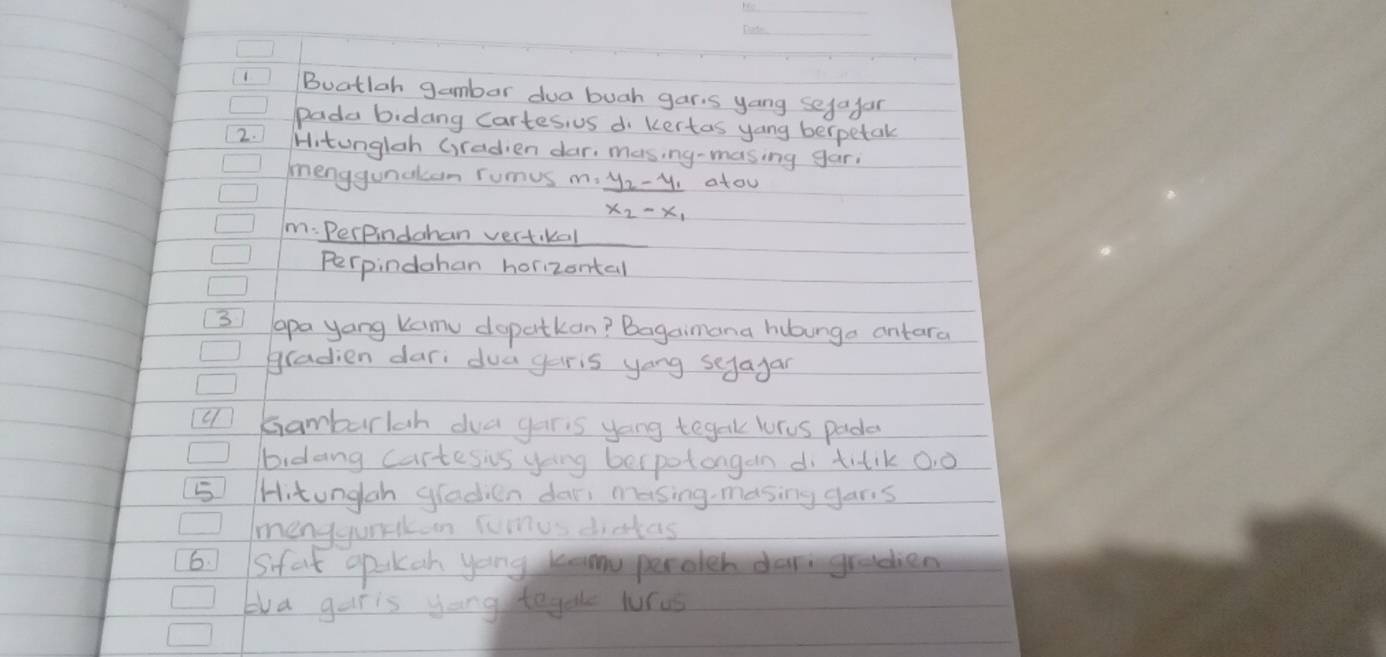 No.
Date.
1 Buatlah gambar dua buah garis yang sejajar
pada bidang cartesius di kertas yang berpetak
2. Hitunglah Gradien dari masing-masing gari
menggunakan rumus m: y₂-y₁ atau
x₂-x₁
m: Perpindahan vertikal
Perpindahan horizontal
3 apa yang kamu dapatkan? Bagaimana hubunga antara
gradien dari dua garis yang sejajar
4 Gambarlah dua garis yang tegak lurus pada
bidang cartesius yang berpotongan di titik 0.0
5 Hitunglah gradien dari masing-masing garis
menggunakan rumus diatas
6. Sifat apakah yang kamu peroleh dari gradien
dua garis yang tegak lurus